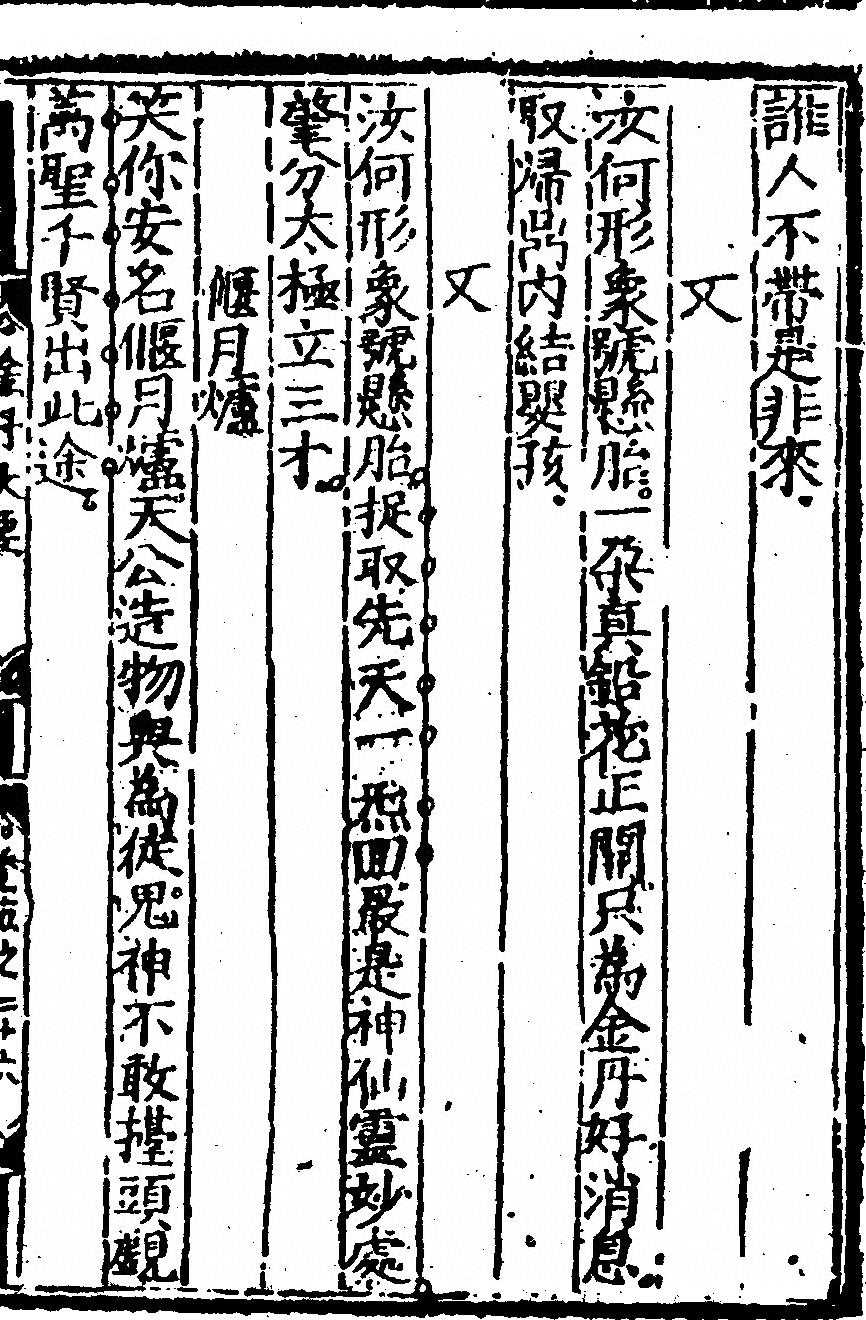 誰人不帶是非來
又
汝何形象號懸胎一朶真鉛花正開只為金丹好消息
馭歸鼎內結嬰孩
又
汝何形象號懸胎捉取先天一炁回最是神仙靈妙處
擘分太極立三才
偃月爐
笑你安名偃月爐天公造物與為徒鬼神不敢擡頭覷
萬聖千賢出此途
金丹大要
卷五之二十六